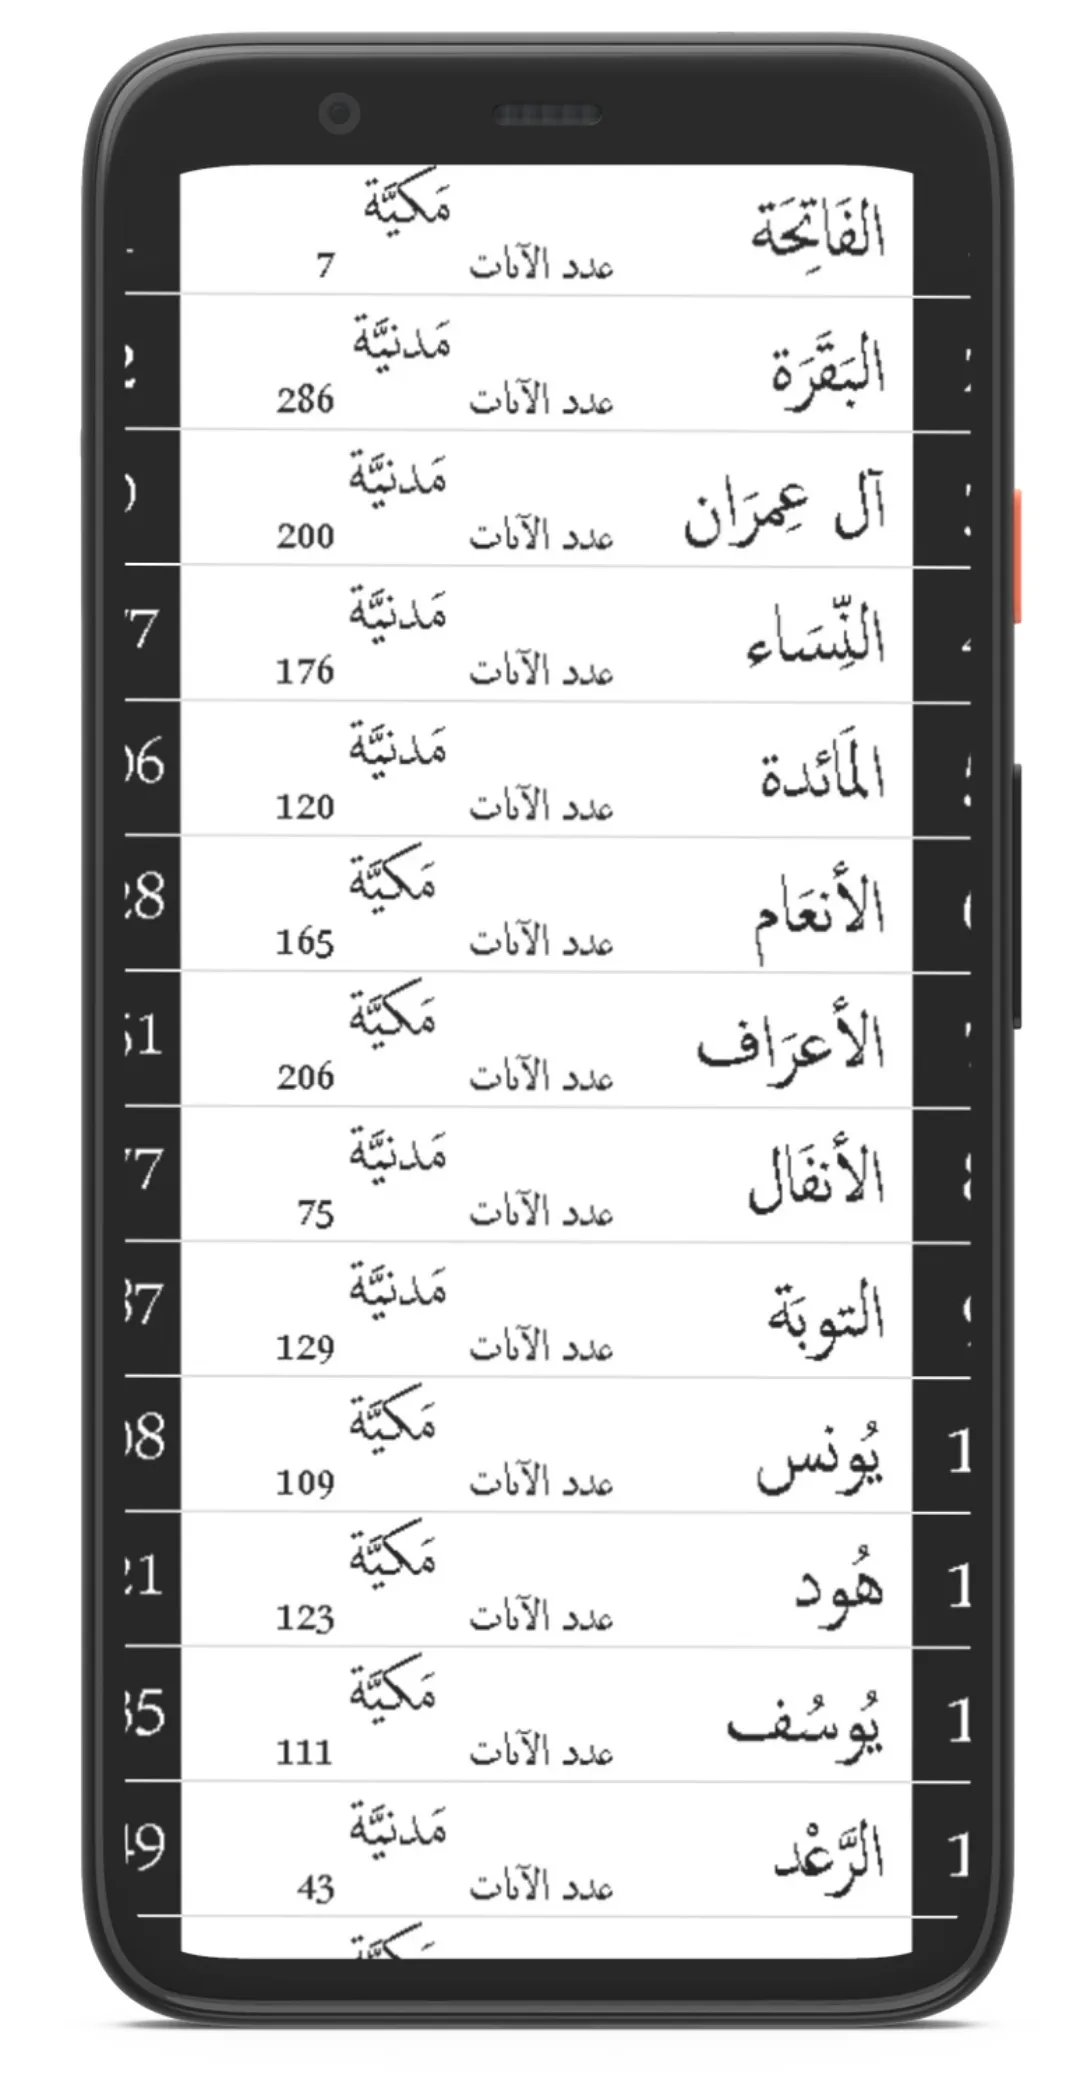 الفَاتِحَة مَكيَّة
عدد الآيات 7
البَقَرَة مَدنيَّة
عدد الآيات 286
آل عِمرَان مَدنيَّة
عدد الآيات 200
النِّسَاء مَدنيَّة
عدد الآيات 176
المَائدة مَدنيَّة
عدد الآيات 120
الأنعَام مَكيَّة
عدد الآيات 165
الأعرَاف مَكيَّة
عدد الآيات 206
الأنفَال مَدنيَّة
عدد الآيات 75
التوبَة مَدنيَّة
عدد الآيات 129
يُونس مَكيَّة
عدد الآيات 109
هُود مَكيَّة
عدد الآيات 123
يُوسُف مَكيَّة
عدد الآيات 111
الرَّعْد مَدنيَّة
عدد الآيات 43